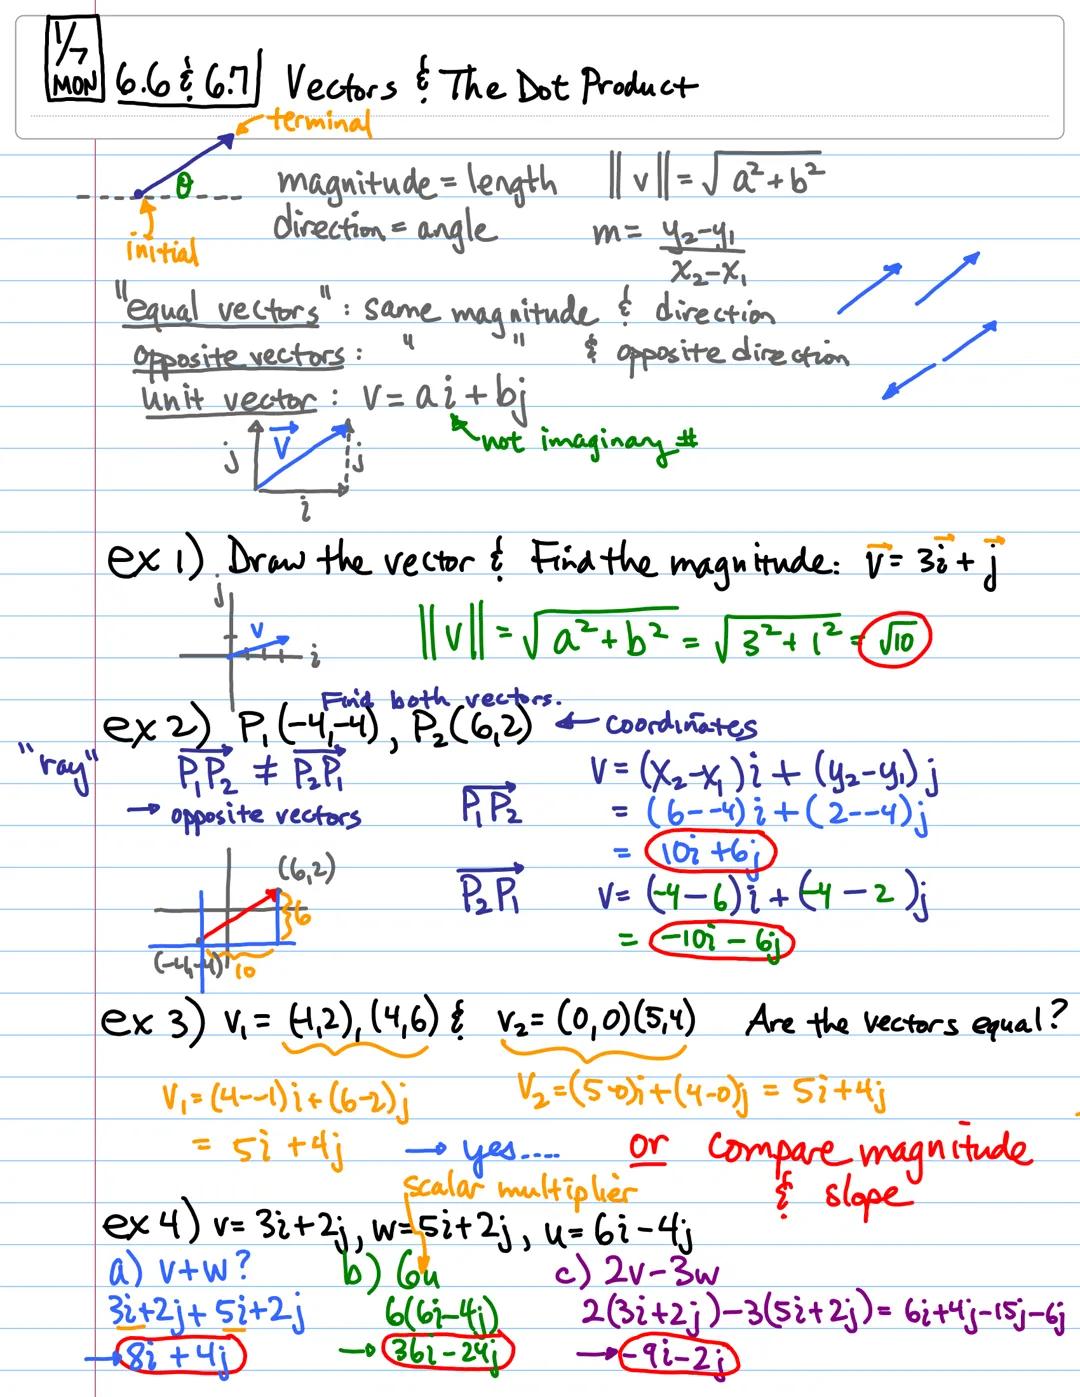 1/7
MON
6.6 & 6.7 Vectors & The Dot Product
terminal
θ
initial
magnitude = length ||v|| = √a²+b²
direction = angle m = y₂-y₁ / x₂-x₁
"equal vectors" : same magnitude & direction
opposite vectors : " " & opposite direction
Unit vector : v = ai + bj
not imaginary #
j v j
i
ex 1) Draw the vector & Find the magnitude: v = 3i + j
j
v
i
||v|| = √a²+b² = √3²+1² = √10
Find both vectors.
ex 2) P₁(-4,-4), P₂(6,2) ← coordinates
"ray" P₁P₂ ≠ P₂P₁
→ opposite vectors
P₁P₂ v = (x₂-x₁)i + (y₂-y₁)j
= (6--4)i + (2--4)j
= 10i + 6j
P₂P₁ v = (-4-6)i + (-4-2)j
= -10i - 6j
(6,2)
6
(-4,-4) 10
ex 3) v₁ = (-1,2), (4,6) & v₂ = (0,0)(5,4) Are the vectors equal?
v₁ = (4--1)i + (6-2)j v₂ = (5-0)i + (4-0)j = 5i + 4j
= 5i + 4j → yes.... or compare magnitude
& slope
scalar multiplier
ex 4) v = 3i + 2j, w = 5i + 2j, u = 6i - 4j
a) v+w? b) 6u c) 2v-3w
3i+2j + 5i+2j 6(6i-4j) 2(3i+2j)-3(5i+2j) = 6i+4j-15j-6j
→ 8i + 4j → 36i - 24j → -9i-2j